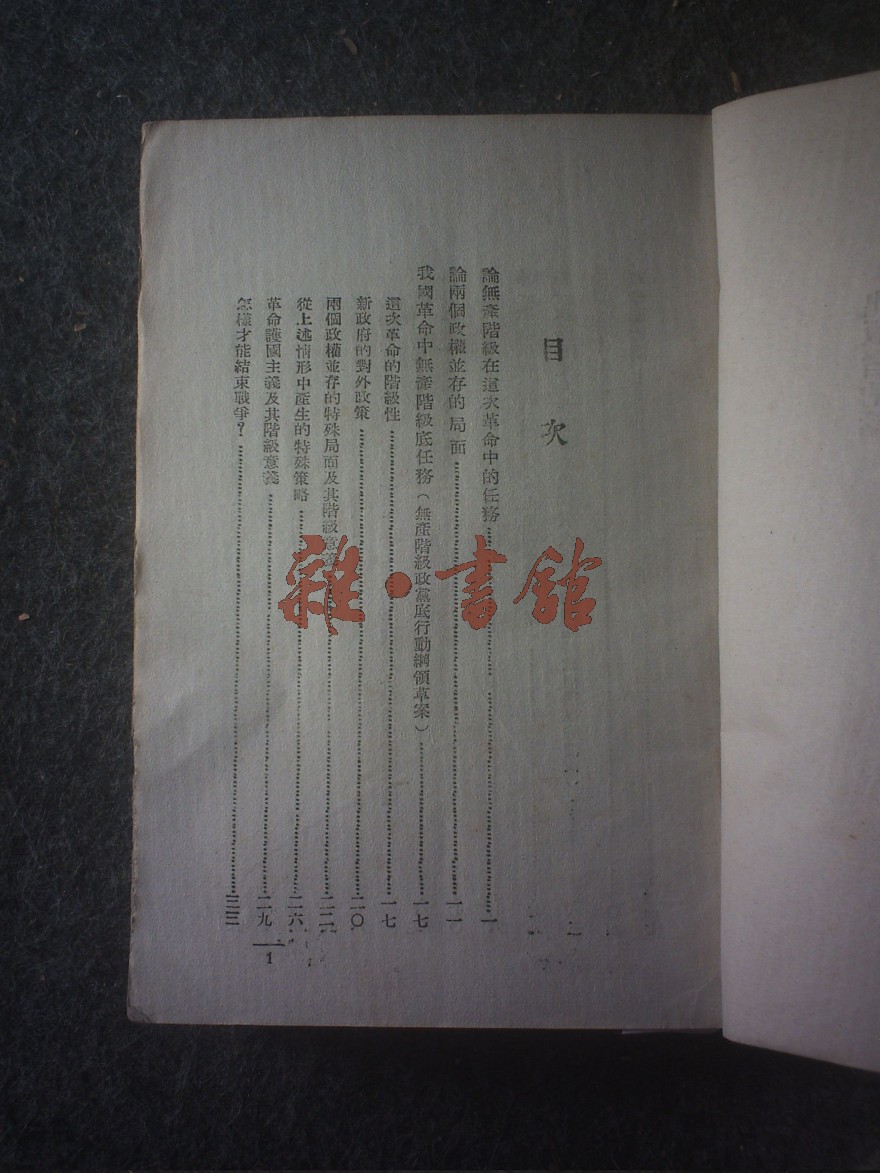 目次
論無產階級在這次革命中的任務……一
論兩個政權並存的局面……一一
我國革命中無產階級底任務(無產階級政黨底行動綱領草案)……一七
這次革命的階級性……一七
新政府的對外政策……二〇
兩個政權並存的特殊局面及其階級意義……二二
從上述情形中產生的特殊策略……二六
革命護國主義及其階級意義……二九
怎樣才能結束戰爭?……三三
1
雜·書館